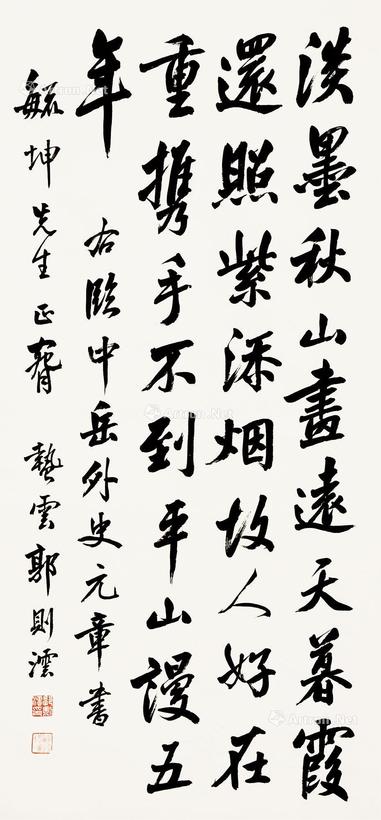 淡墨秋山畫遠天暮霞
還照紫添烟故人好在
重攜手不到平山謾五
年
右臨中岳外史元章書
毓坤先生正臂
蟄雲郭則澐